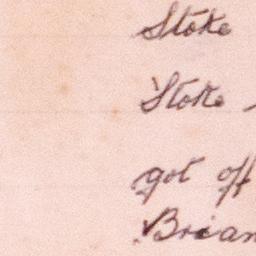 Stoke
Stoke
got off
Brian